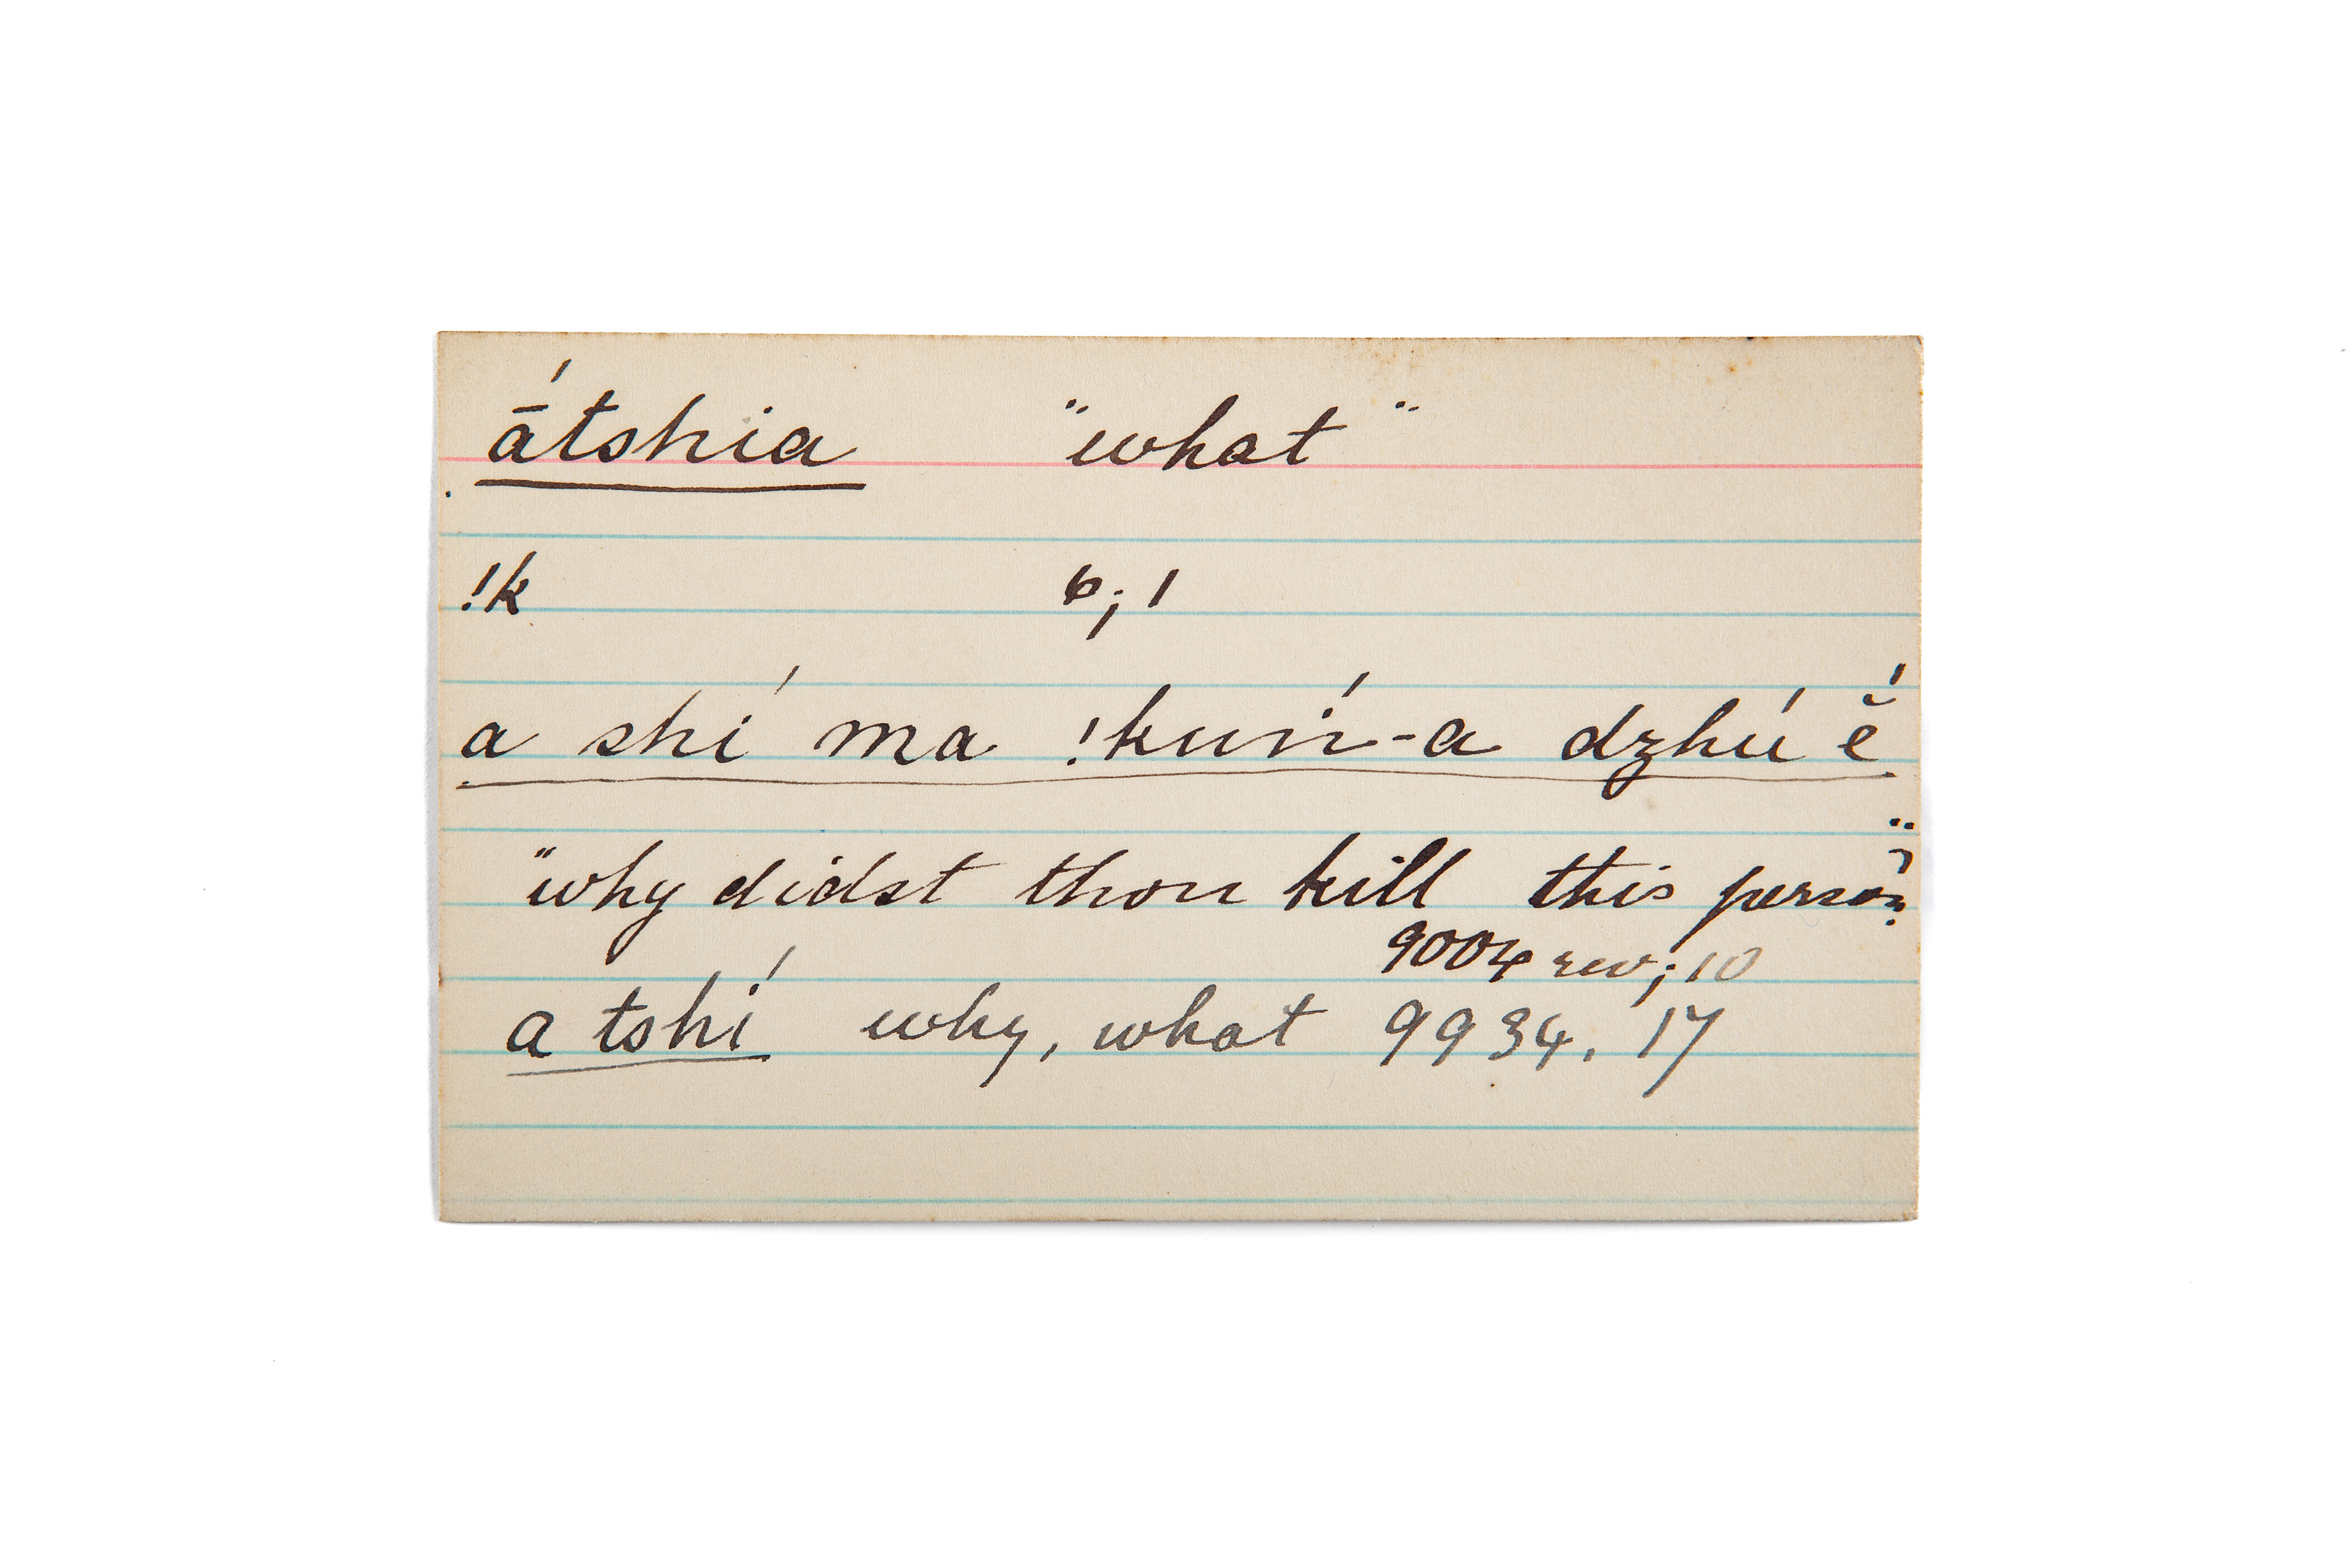 ā́tshia "what"
!k 6; 1
a shí ma !kuń-a dzhú ĕ́
"why didst thou kill this person?"
9004 rev; 10
a tshí why, what 9934. 17